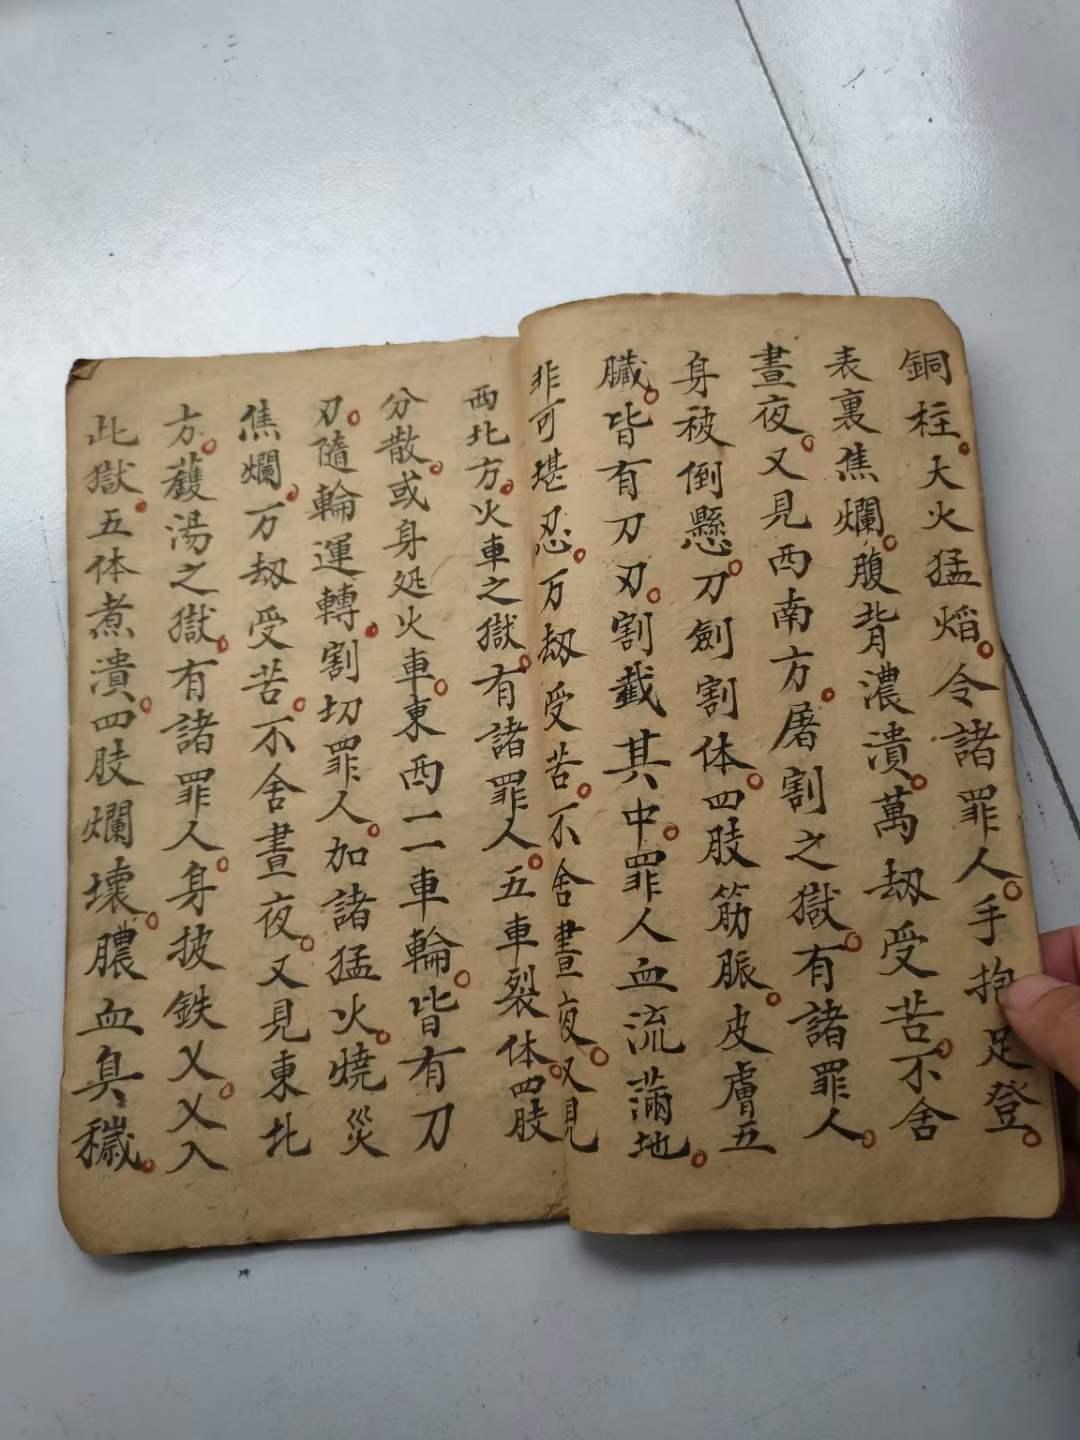 銅柱大火猛焰令諸罪人手抱足登
表裏焦爛腹背濃潰萬刼受苦不舍
晝夜又見西南方屠割之獄有諸罪人
身被倒懸刀劍割体四肢筋脈皮膚五
臟皆有刀刃割截其中罪人血流滿地
非可堪忍万刼受苦不舍晝夜又見
西北方火車之獄有諸罪人五車裂体四肢
分散或身処火車東西二車輪皆有刀
刃隨輪運轉割切罪人加諸猛火燒災
焦爛万刼受苦不舍晝夜又見東北
方蒦湯之獄有諸罪人身披鉄乂乂入
此獄五体煮潰四肢爛壞膿血臭穢